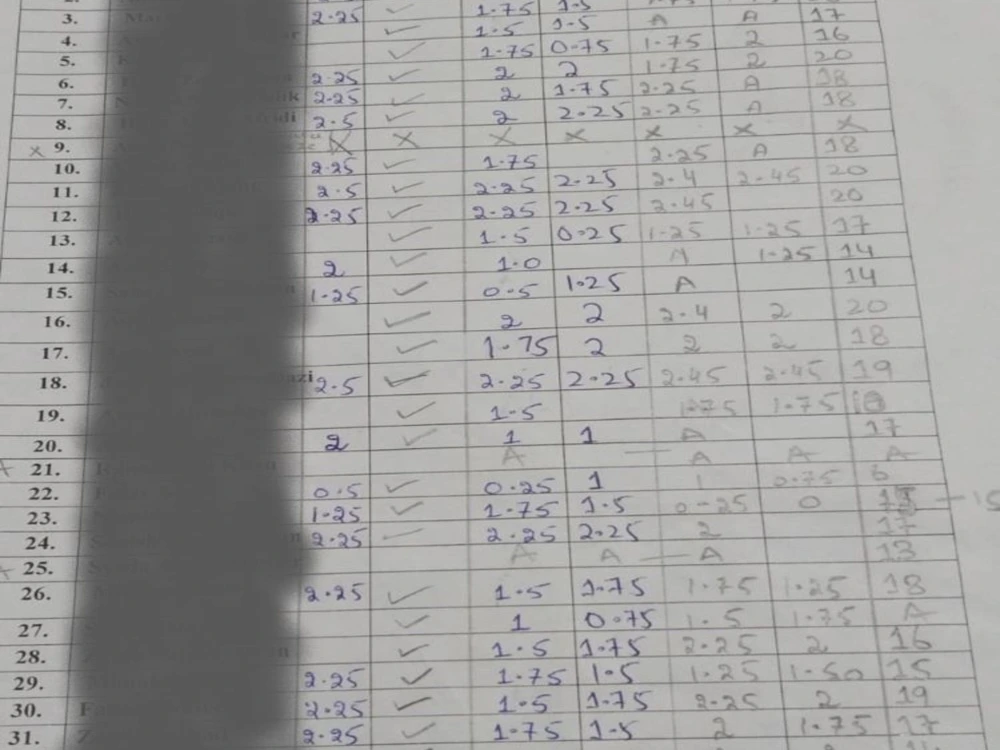 3. 2.25 ✓ 1.75 1.5
4. ✓ 1.5 1.5 A A 17
5. ✓ 1.75 0.75 1.75 2 16
6. 2.25 ✓ 2 2 1.75 2 20
7. 2.25 ✓ 2 1.75 2.25 A 18
8. 2.5 ✓ 2 2.25 2.25 A 18
x 9. x x x x x x x
10. 2.25 ✓ 1.75 2.25 A 18
11. 2.5 ✓ 2.25 2.25 2.4 2.45 20
12. 2.25 ✓ 2.25 2.25 2.45 20
13. ✓ 1.5 0.25 1.25 1.25 17
14. 2 ✓ 1.0 A 1.25 14
15. 1.25 ✓ 0.5 1.25 A 14
16. ✓ 2 2 2.4 2 20
17. ✓ 1.75 2 2 2 18
18. 2.5 ✓ 2.25 2.25 2.45 2.45 19
19. ✓ 1.5 1.75 1.75
20. 2 ✓ 1 1 A 17
21. A — A A A
22. 0.5 ✓ 0.25 1 1 0.75
23. 1.25 ✓ 1.75 1.5 0-25 0 — 15
24. 2.25 ✓ 2.25 2.25 2 17
25. A A — A 13
26. 2.25 ✓ 1.5 1.75 1.75 1.25 18
27. ✓ 1 0.75 1.5 1.75 A
28. ✓ 1.5 1.75 2.25 2 16
29. 2.25 ✓ 1.75 1.5 1.25 1.50 15
30. 2.25 ✓ 1.5 1.75 2.25 2 19
31. 2.25 ✓ 1.75 1.5 2 1.75 17